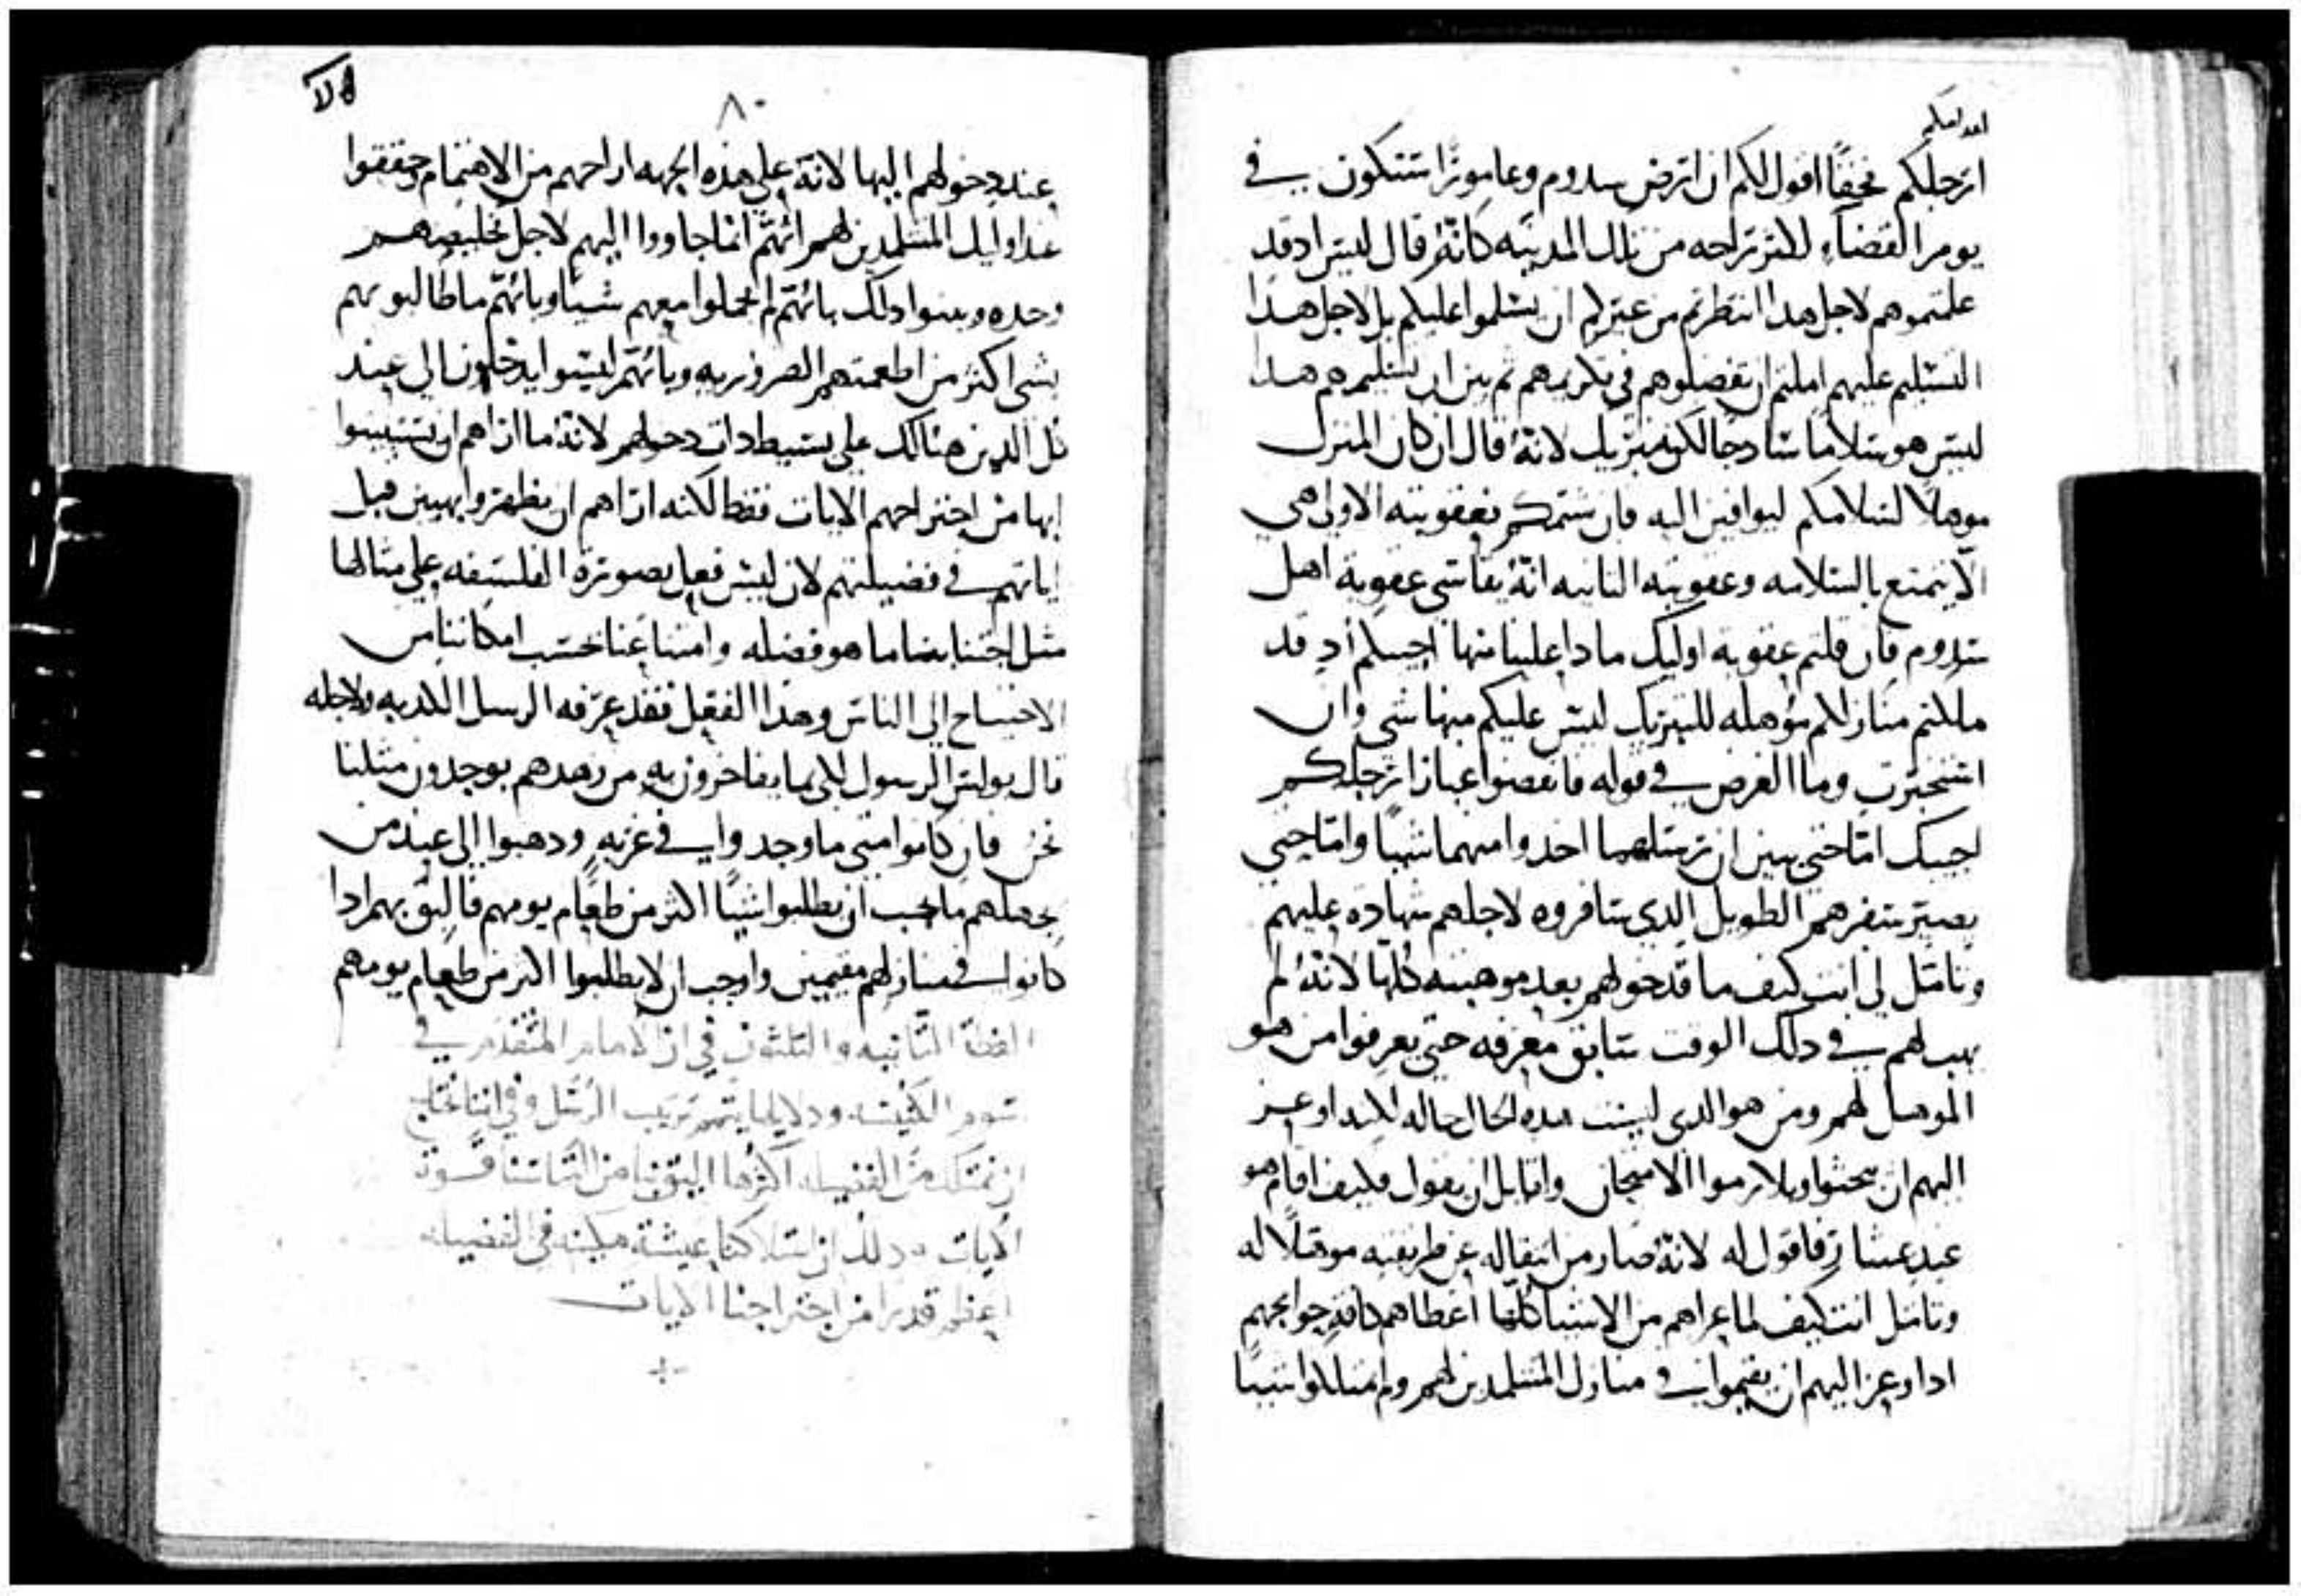 ارجلكم فحقًا اقول لكم ان ارض سدوم وعامورا ستكون في
يوم القضاء اكثر راحه من تلك المدينه كانه قال ليس اذ قد
علمتموهم لاجل هدا انتظرتم من غيركم ان يسلموا عليكم بل لاجل هدا
التسليم عليهم املتم ان تفضلوهم في تكريمهم ثم بين ان تسليمهم هدا
ليس هو سلامًا سادجًا لكنه تبريك لانه قال ان كان المنزل
موهلًا لسلامكم ليوافين اليه فان شتمكم فعقوبته الاولى هي
الا يتمتع بالسلامه وعقوبته الثانيه انه يقاسي عقوبة اهل
سدوم فان قلتم عقوبة اوليك مادا علينا منها اجيبكم اد قد
ملكتم منازلا مؤهله للتبريك ليس عليكم منها شي وان
استخبرت وما الغرض في قوله فانفضوا غبار ارجلكم
اجيبك اما حتى يبين ان رسلهما اخدوا منهما شيا واما حتى
يصير سفرهم الطويل الدي سافروه لاجلهم شهاده عليهم
وتامل لي انت كيف ما قد خولهم بعد موهبته كلها لانه لم
يهب لهم في دلك الوقت سابق معرفه حتى يعرفوا من هو
الموهل لهم ومن هو الدي ليست هده الحال حاله لكنه اوعز
اليهم ان يبحثوا ويلازموا الامتحان وقايل ان يقول فكيف اقام هو
عند عشار فاقول له لانه صار من انتقاله عن طريقته موهلا له
وتامل انت كيف لما عراهم من الاشيا كلها اعطاهم كافه حوايجهم
ادا وعز اليهم ان يقيموا في منازل المتتلمدين لهم ولم يمتلكوا شيا
٨٠
عند دخولهم اليها لانه على هذه الجهه اراحهم من الاهتمام وحققوا
عند اوليك المتتلمدين لهم انهم انما جاووا اليهم لاجل تخليصهم
وحده وبينوا دلك بانهم لم يحملوا معهم شيا وبانهم ما طالبوهم
بشى اكثر من اطعمتهم الضروريه وبانهم ليسوا يدخلون الى عند
كل الدين هنالك على بسيط دات دخولهم لانه ما ارادهم ان يستبينوا
بها من اجتراحهم الايات فقط لكنه ارادهم ان يظهروا بهيين قبل
اياتهم في فضيلتهم لان ليس فعل يصوره الفلسفه على مثالها
مثل اجتنابنا ما هو فضله وامتناعنا بحسب امكاننا من
الاحتياج الى الناس وهدا الفعل فقد عرفه الرسل الكدبه ولاجله
قال بولس الرسول لكي بما يفاخرون به من زهدهم يوجدون مثلنا
نحن فان كانوا متى ما وجدوا في غربه ودهبوا الى عند من
يجهلهم ما يجب ان يطلبوا شيًا اكثر من طعام يومهم فاليق بهم ادا
كانوا في منازلهم مقيمين واوجب ان لا يطلبوا اكثر من طعام يومهم
العظه الثانيه والثلثون في ان الامام المتقدم في
ان نمتلك من الفضيله اكثرها اليق بنا من التماسنا قوة
الايات ودلك ان امتلاكنا عيشة مكينه في الفضيله
اعظم قدرا من اجتراحنا الايات